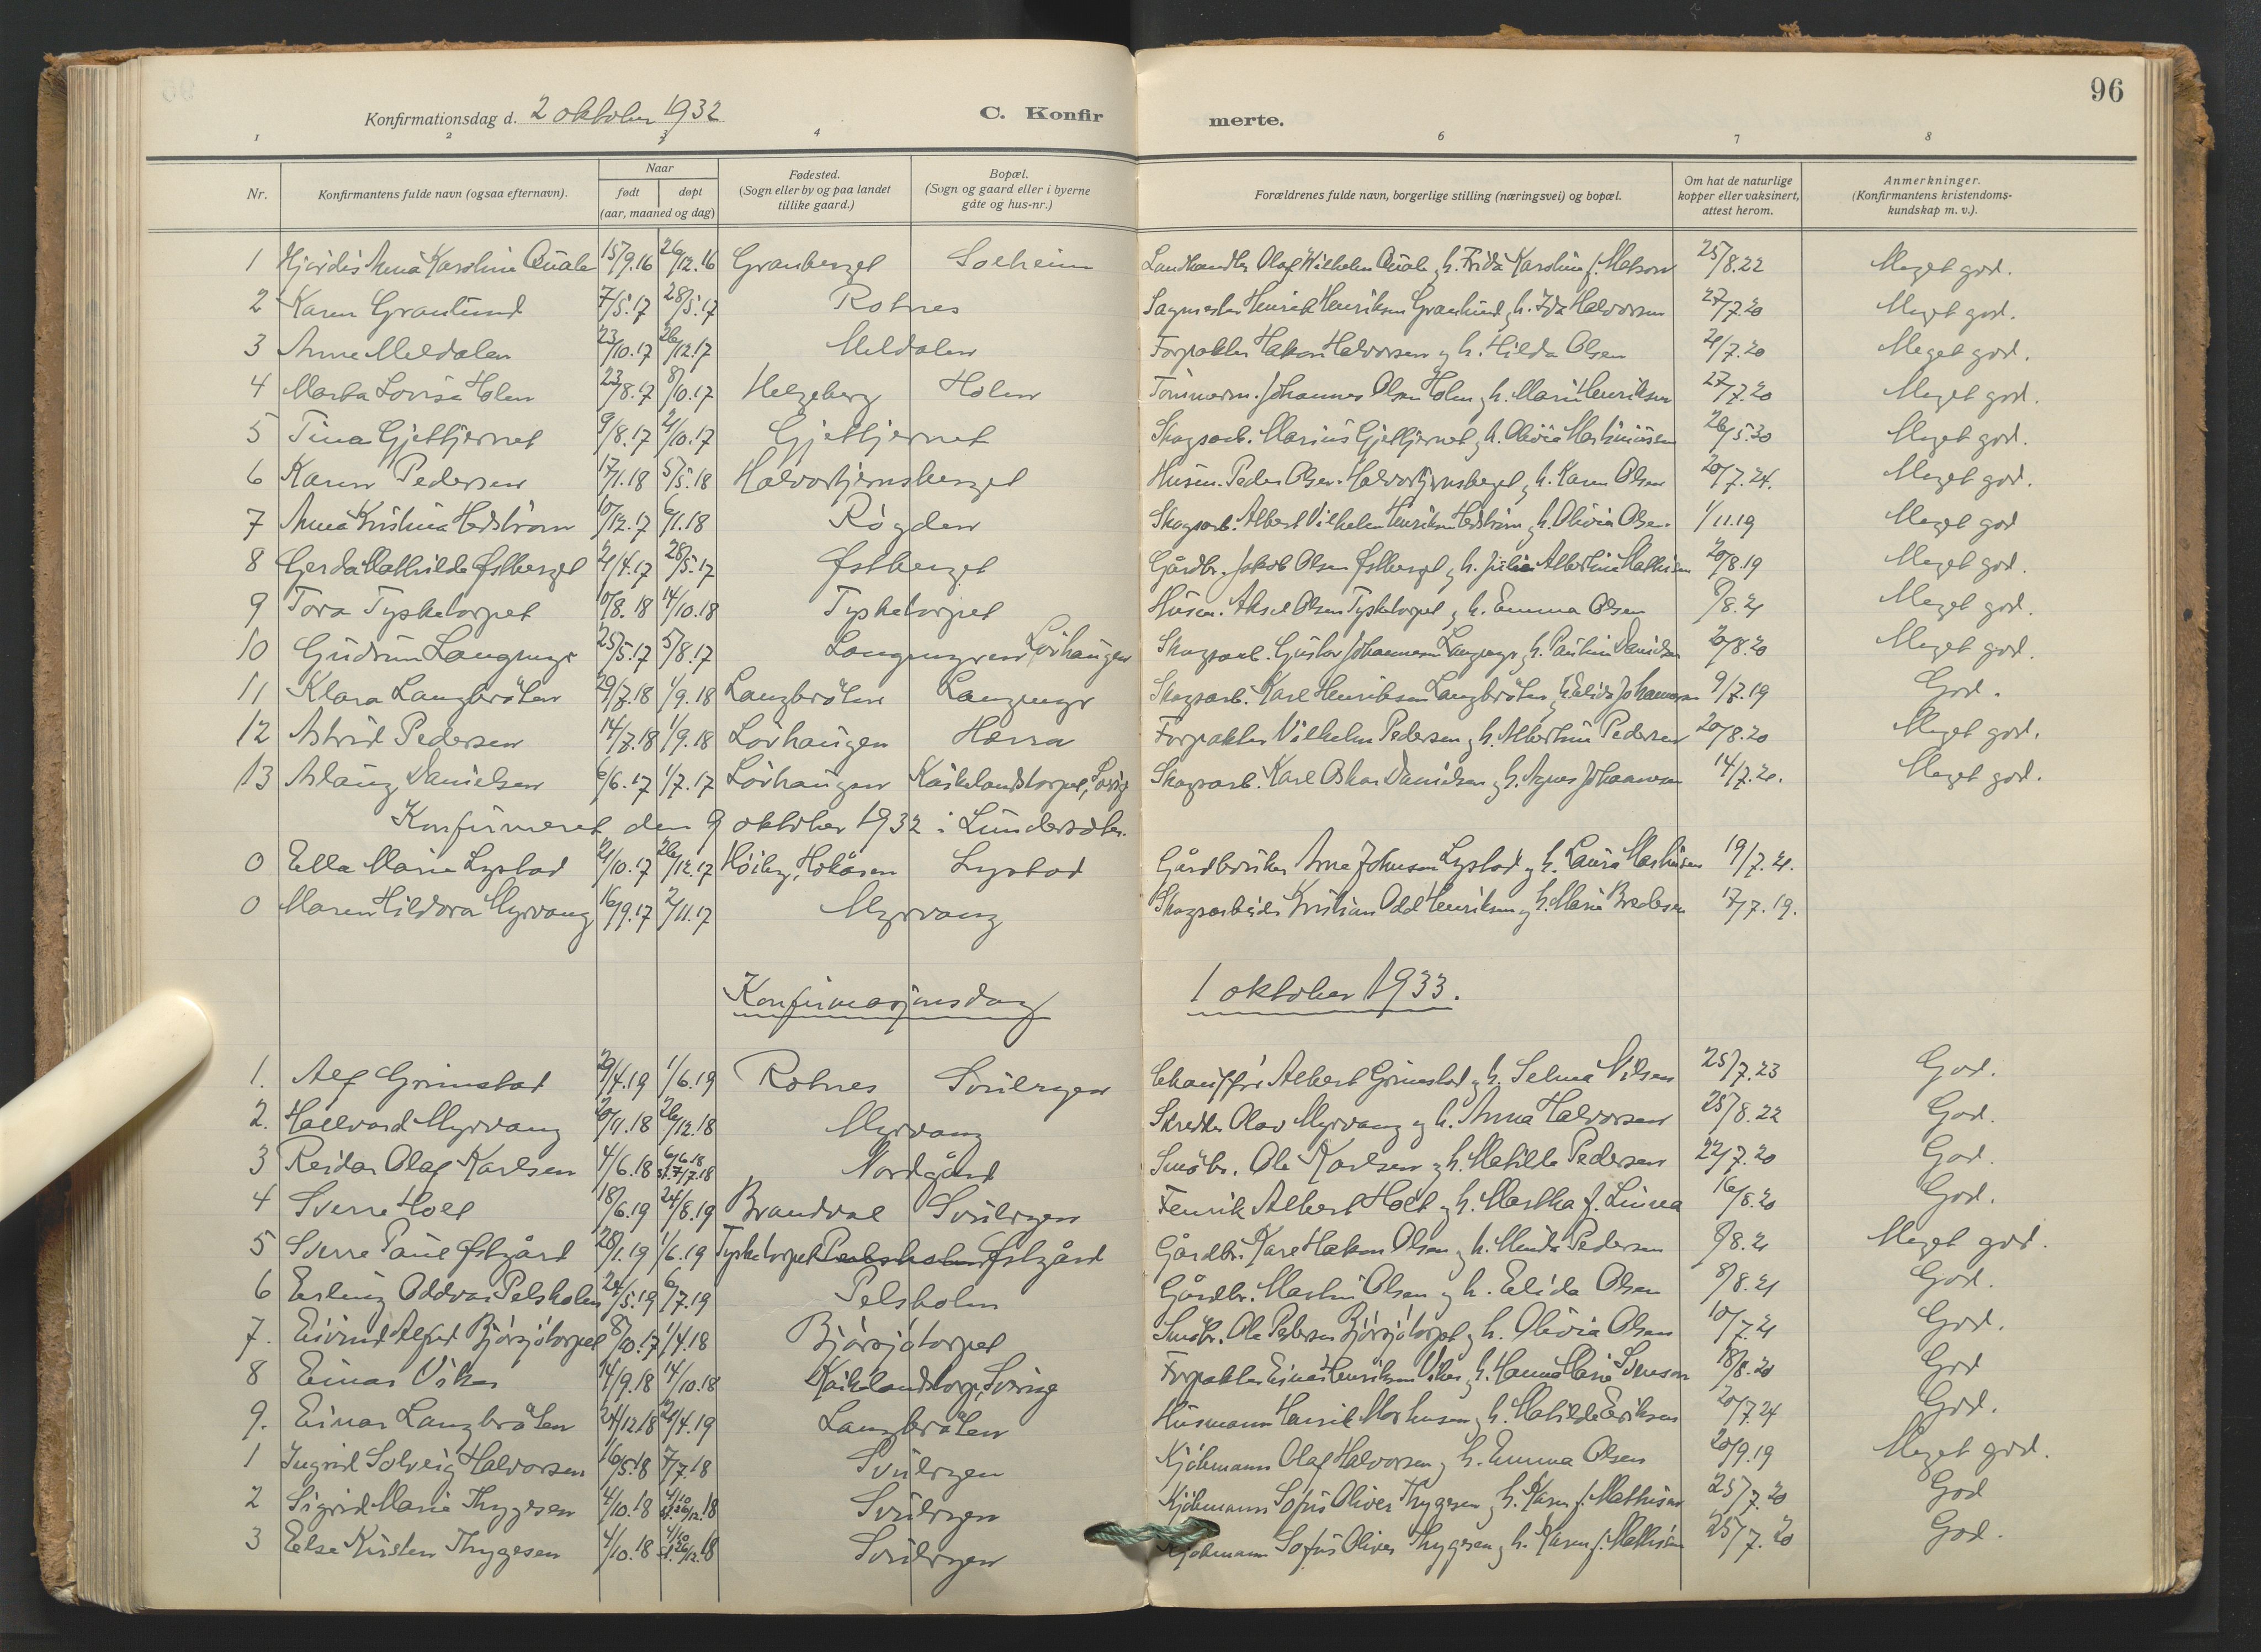 96
Konfirmationsdag d. 2 oktober 1932 C. Konfirmerte.
1 2 3 4 6 7 8
Nr. Konfirmantens fulde navn (ogsaa efternavn). Naar født døpt (aar, maaned og dag) Fødested. (Sogn eller by og paa landet tillike gaard.) Bopæl. (Sogn og gaard eller i byerne gate og hus-nr.) Forældrenes fulde navn, borgerlige stilling (næringsvei) og bopæl. Om hat de naturlige kopper eller vaksinert, attest herom. Anmerkninger. (Konfirmantens kristendomskundskap m. v.).
1 Hjørdis Anna Karoline Quale 15/9.16 26/12.16 Granberget Solheim Landhandler Olaf Wilhelm Quale og h. Frida Karoline f. Matson 25/8.22 Meget god.
2 Karen Granlund 7/5.17 28/5.17 Rotnes Sagmester Henrik Henriksen Granlund og h. Ida Halvorsen 27/7.20 Meget god.
3 Anne Meldalen 23/10.17 26/12.17 Meldalen Forpakter Hakon Halvorsen og h. Hilda Olsen 21/7.20 Meget god.
4 Marta Lovise Holen 23/8.17 8/10.17 Helgeberg Holen Tømmerm. Johannes Olsen Holen og h. Marie Henriksen 27/7.20 Meget god.
5 Tina Gjettjernet 9/8.17 21/10.17 Gjettjernet Skogsarb. Marius Gjettjernet og h. Olivia Martiniussen 26/5.30 Meget god.
6 Karen Pedersen 17/1.18 5/5.18 Halvortjernsberget Husm. Peder Olsen Halvortjernsberget og h. Karen Olsen 20/7.24. Meget god.
7 Anna Kristina Hedstrøm 10/12.17 6/1.18 Røgden Skogsarb. Albert Vilhelm Henriksen Hedstrøm og h. Olivia Olsen 1/11.19 Meget god
8 Gerda Mathilde Østberget 21/4.17 28/5.17 Østberget Gårdbr. Jakob Olsen Østberget og h. Julie Albertine Mathisen 20/8.19 Meget god.
9 Tora Tysketorpet 10/8.18 14/10.18 Tysketorpet Husm. Aksel Olsen Tysketorpet og h. Emma Olsen 8/8.21 Meget god.
10 Gudrun Langmyr 25/5.17 5/8.17 Langmyren Løvhaugen Skogsarb. Gustav Johannesen Langmyr og h. Pauline Danielsen 20/8.20 Meget god.
11 Klara Langbråten 29/7.18 1/9.18 Langbråten Langmyr Skogsarb. Karl Henriksen Langbråten og h. Elida Johannesen 9/7.19 God.
12 Astrid Pedersen 14/7.18 1/9.18 Løvhaugen Hærra Forpakter Vilhelm Pedersen og h. Albertine Pedersen 20/8.20 Meget god.
13 Aslaug Danielsen 6/6.17 1/7.17 Løvhaugen Kaikelandstorpet, Sverig Skogsarb. Karl Oskar Danielsen og h. Agnes Johannesen 14/7.21. Meget god.
Konfirmeret den 9 oktober 1932 i Lundersæter.
0 Ella Marie Lystad 21/10.17 26/12.17 Høiby, Hokåsen Lystad Gårdbruker Arne Johnsen Lystad og h. Laura Mathisen 19/7.21.
0 Maren Hildora Myrvang 16/9.17 2/11.17 Myrvang Skogsarbeider Kristian Odd Henriksen og h. Marie Bredesen 17/7.19.
Konfirmasjonsdag 1 oktober 1933.
1. Alf Grimstad 29/4.19 1/6.19 Rotnes Svullrygen Chauffør Albert Grimstad og h. Selma Nilsen 25/7.23 God.
2. Hallvard Myrvang 20/11.18 26/12.18 Myrvang Skredder Olav Myrvang og h. Anna Halvorsen 25/8.22 God.
3 Reidar Olaf Karlsen 4/6.18 6/6.18 st. 7/7.18 Nordgård Småbr. Ole Karlsen og h. Matilde Pedersen 22/7.20 God.
4 Sverre Holt 18/6.19 24/8.19 Brandval Svullrygen Fenrik Albert Holt og h. Martha f. Linna 16/8.20 God.
5 Sverre Paul Østgård 28/1.19 1/6.19 Tysketorpet Østgård Gårdbr. Kare Hakon Olsen og h. Minda Pedersen 8/8.21 Meget god.
6 Erling Oddvar Pelsholen 24/5.19 6/7.19 Pelsholen Gårdbr. Martin Olsen og h. Elida Olsen 8/8.21 God.
7. Eivind Alfred Bjørsjøtorpet 8/10.17 1/4.18 Bjørsjøtorpet Småbr. Ole Pedersen Bjørsjøtorpet og h. Olivia Olsen 10/7.21 God.
8 Einar Viker 14/9.18 14/10.18 Kaikelandstorp, Sverige Forpakter Einar Henriksen Viker og h. Hanna Marie Svenson 18/8.20 God
9. Einar Langbråten 24/12.18 21/4.19 Langbråten Husmann Henrik Markusen og h. Matilde Eriksen 20/7.24 God.
1 Ingrid Solveig Halvorsen 16/5.18 7/7.18 Svullrygen Kjøbmann Olaf Halvorsen og h. Emma Olsen 20/9.19 Meget god.
2 Sigrid Marie Thygesen 4/10.18 4/10 st. 26/12.18 Svullrygen Kjøbmann Sofus Oliver Thygesen og h. Karen f. Mathisen 25/7.20 God
3 Else Kirsten Thygesen 4/10.18 4/10 st. 26/12.18 Svullrygen Kjøbmann Sofus Oliver Thygesen og h. Karen f. Mathisen 25/7.20 God.